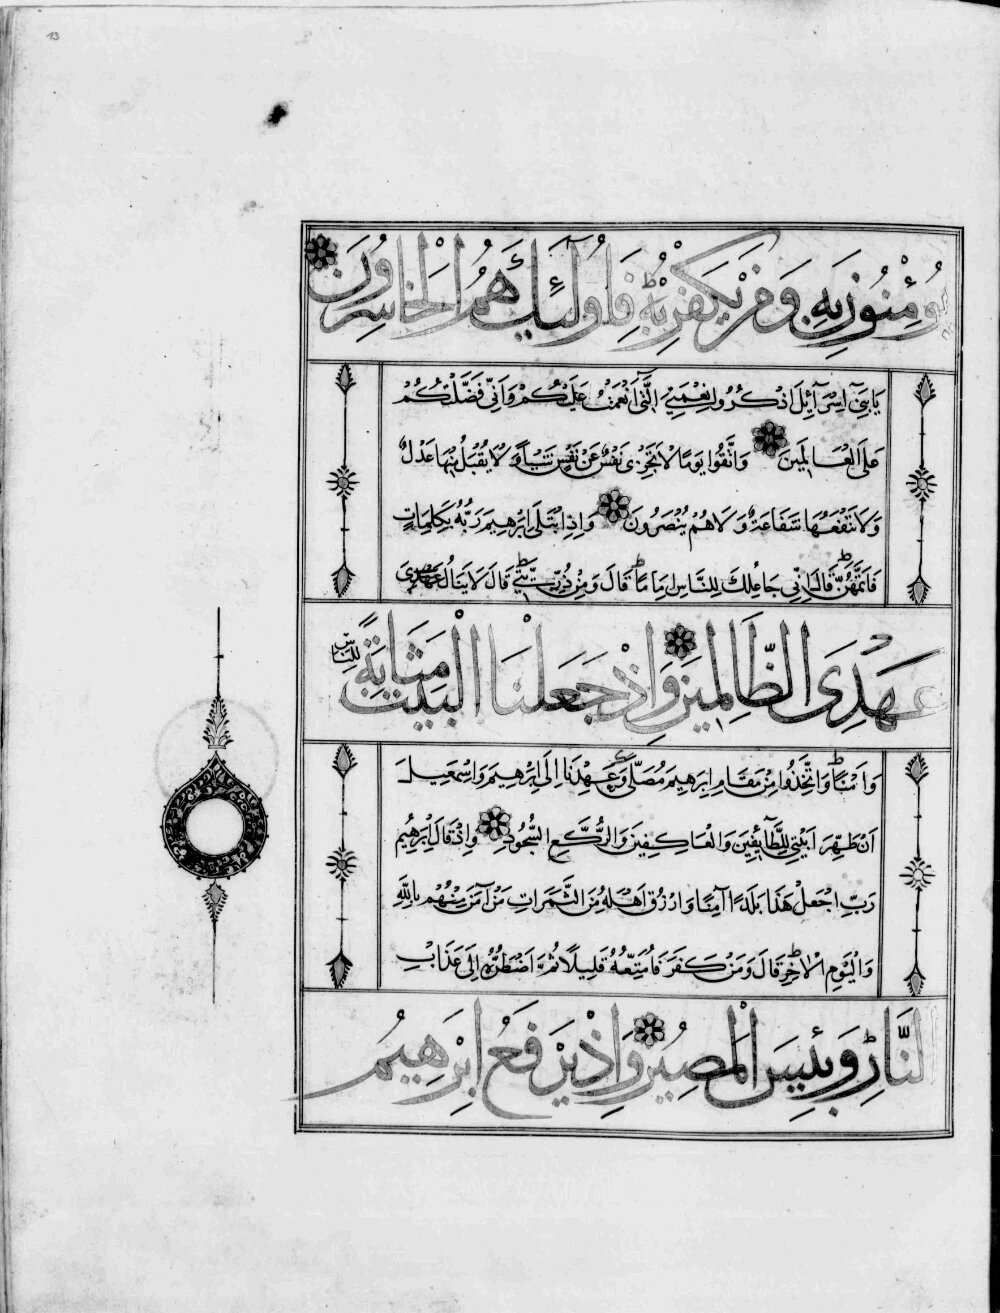 13
يُؤْمِنُونَ بِهِ وَمَنْ يَكْفُرْ بِهِ فَاُولٰئِكَ هُمُ الْخَاسِرُونَ
يَابَنِىٓ اِسْرَآئِلَ اذْكُرُوا نِعْمَتِىَ الَّتِىٓ اَنْعَمْتُ عَلَيْكُمْ وَاَنِّى فَضَّلْتُكُمْ
عَلَى الْعَالَمِينَ وَاتَّقُوا يَوْمًا لَا تَجْزِى نَفْسٌ عَنْ نَفْسٍ شَيْـًٔا وَلَا يُقْبَلُ مِنْهَا عَدْلٌ
وَلَا تَنْفَعُهَا شَفَاعَةٌ وَلَا هُمْ يُنْصَرُونَ وَاِذِ ابْتَلَى اِبْرٰهِيمَ رَبُّهُ بِكَلِمَاتٍ
فَاَتَمَّهُنَّ ط قَالَ اِنِّى جَاعِلُكَ لِلنَّاسِ اِمَامًا ط قَالَ وَمِنْ ذُرِّيَّتِى ط قَالَ لَا يَنَالُ
عَهْدِى الظَّالِمِينَ وَاِذْ جَعَلْنَا الْبَيْتَ مَثَابَةً لِلنَّاسِ
وَاَمْنًا ط وَاتَّخِذُوا مِنْ مَقَامِ اِبْرٰهِيمَ مُصَلًّى وَعَهِدْنَا اِلَى اِبْرٰهِيمَ وَاِسْمٰعِيلَ
اَنْ طَهِّرَ ابَيْتِىَ لِلطَّآئِفِينَ وَالْعَاكِفِينَ وَالرُّكَّعِ السُّجُودِ وَاِذْ قَالَ اِبْرٰهِيمُ
رَبِّ اجْعَلْ هَذَا بَلَدًا آمِنًا وَارْزُقْ اَهْلَهُ مِنَ الثَّمَرَاتِ مَنْ آمَنَ مِنْهُمْ بِاللّٰهِ
وَالْيَوْمِ الْاٰخِرِ ط قَالَ وَمَنْ كَفَرَ فَاُمَتِّعُهُ قَلِيلًا ثُمَّ اَضْطَرُّهُ اِلَى عَذَابِ
النَّارِ ط وَبِئْسَ الْمَصِيرُ وَاِذْ يَرْفَعُ اِبْرٰهِيمُ